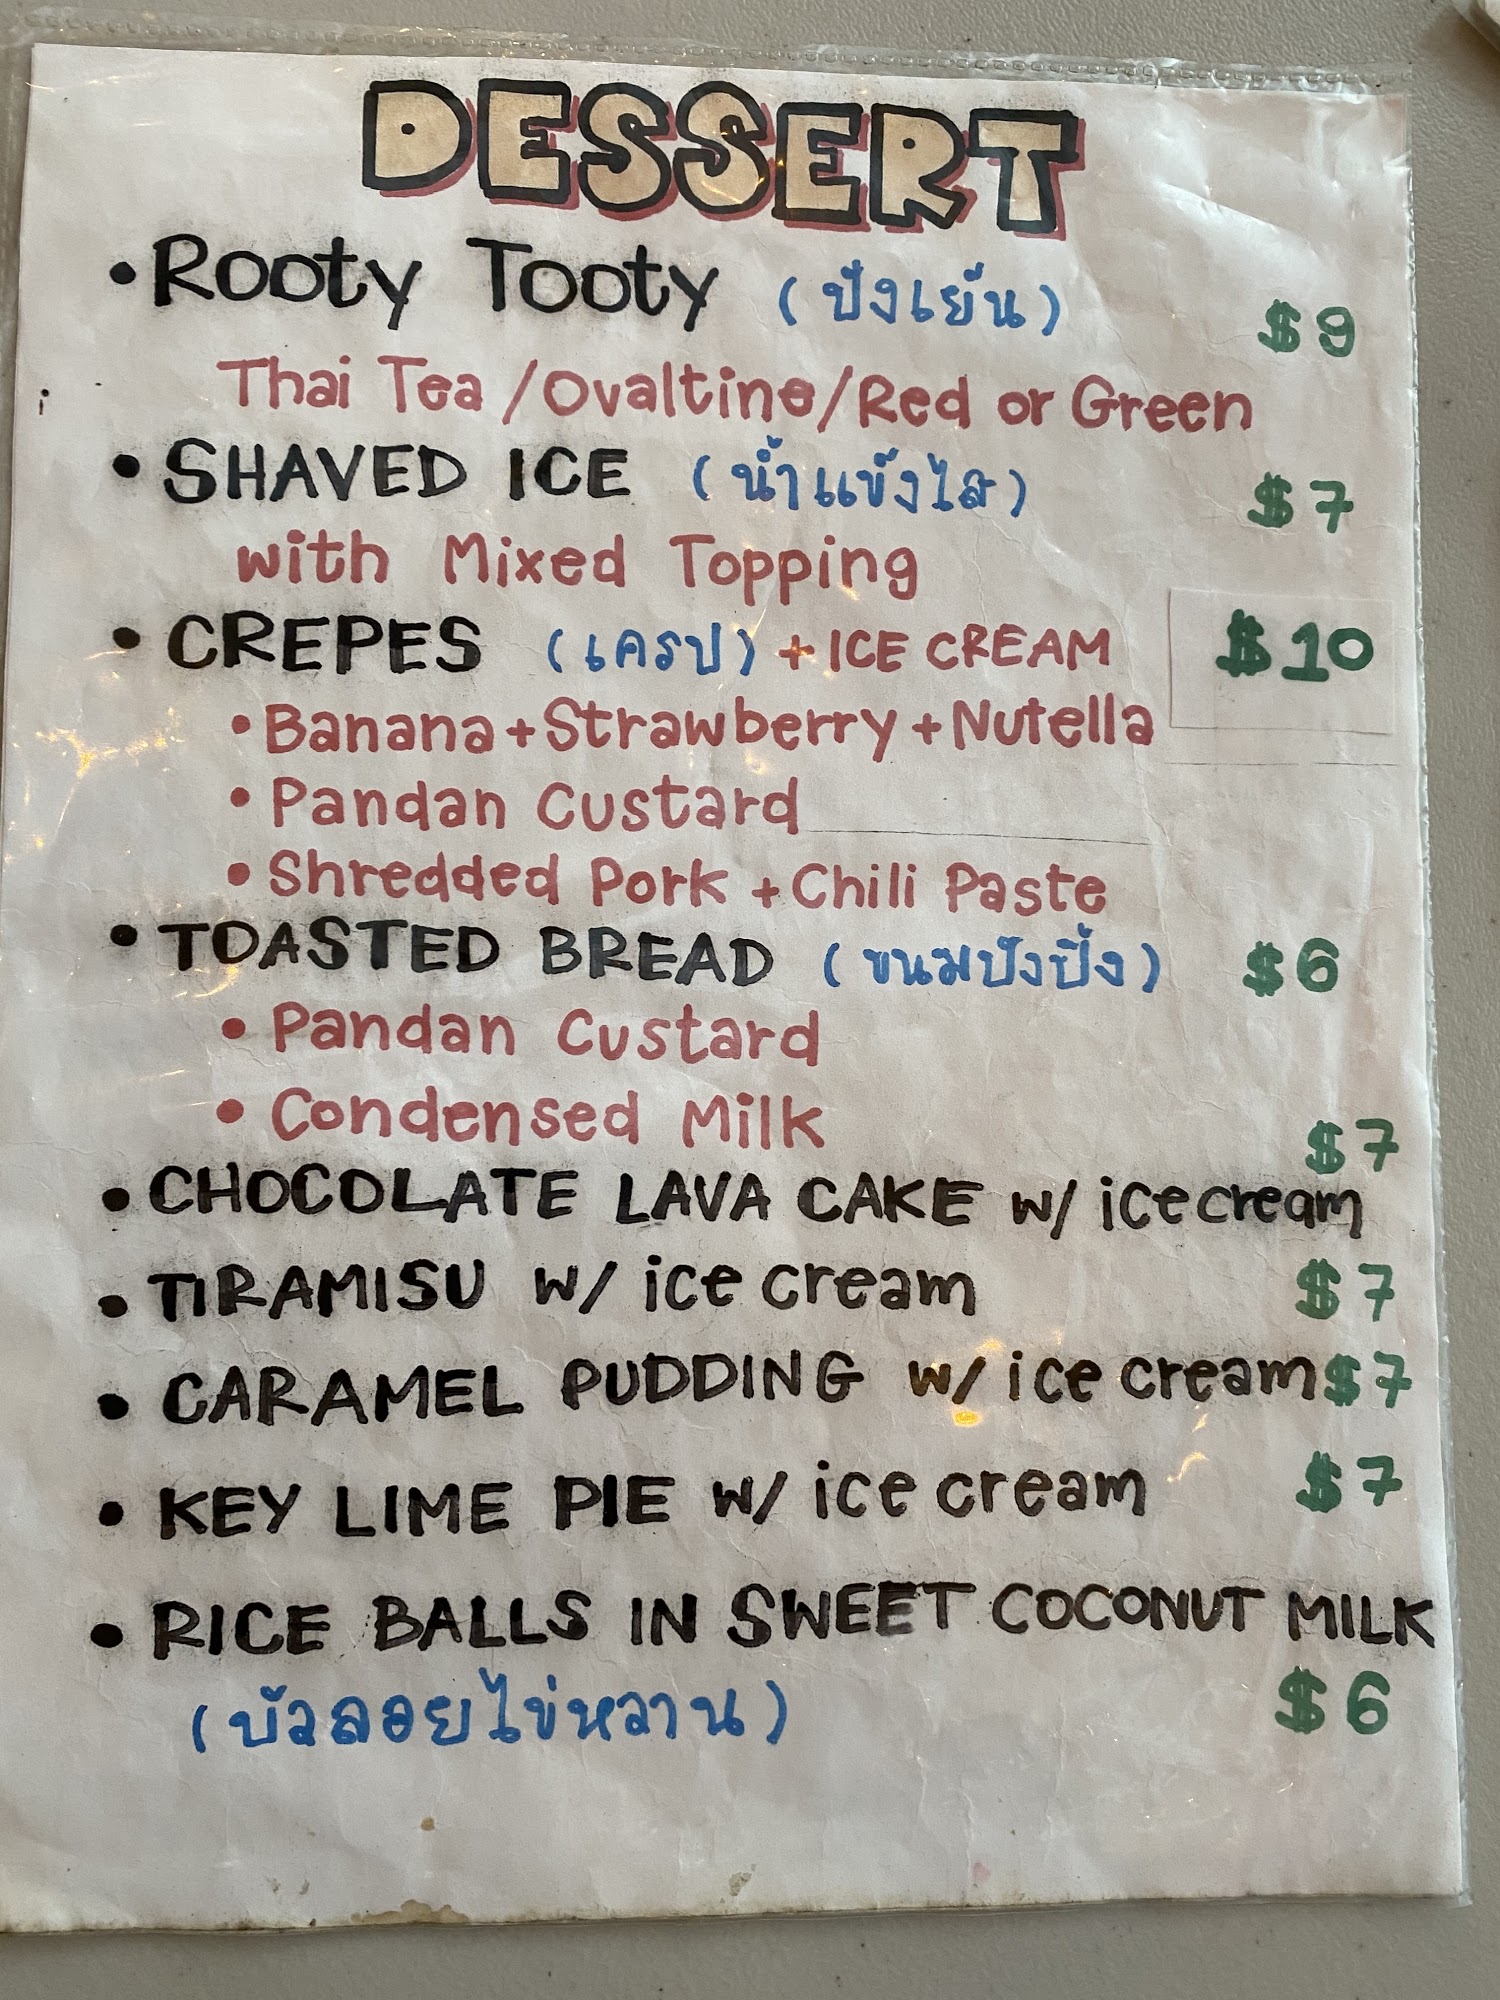 DESSERT
• Rooty Tooty (ปังเย็น) $9
Thai Tea/Ovaltine/Red or Green
• SHAVED ICE (น้ำแข็งไส) $7
with Mixed Topping
• CREPES (เครป) + ICE CREAM $10
• Banana+Strawberry+Nutella
• Pandan Custard
• Shredded Pork + Chili Paste
• TOASTED BREAD (ขนมปังปิ้ง) $6
• Pandan Custard
• Condensed Milk
• CHOCOLATE LAVA CAKE w/ ice cream $7
• TIRAMISU w/ ice cream $7
• CARAMEL PUDDING w/ ice cream $7
• KEY LIME PIE w/ ice cream $7
• RICE BALLS IN SWEET COCONUT MILK
(บัวลอยไข่หวาน) $6